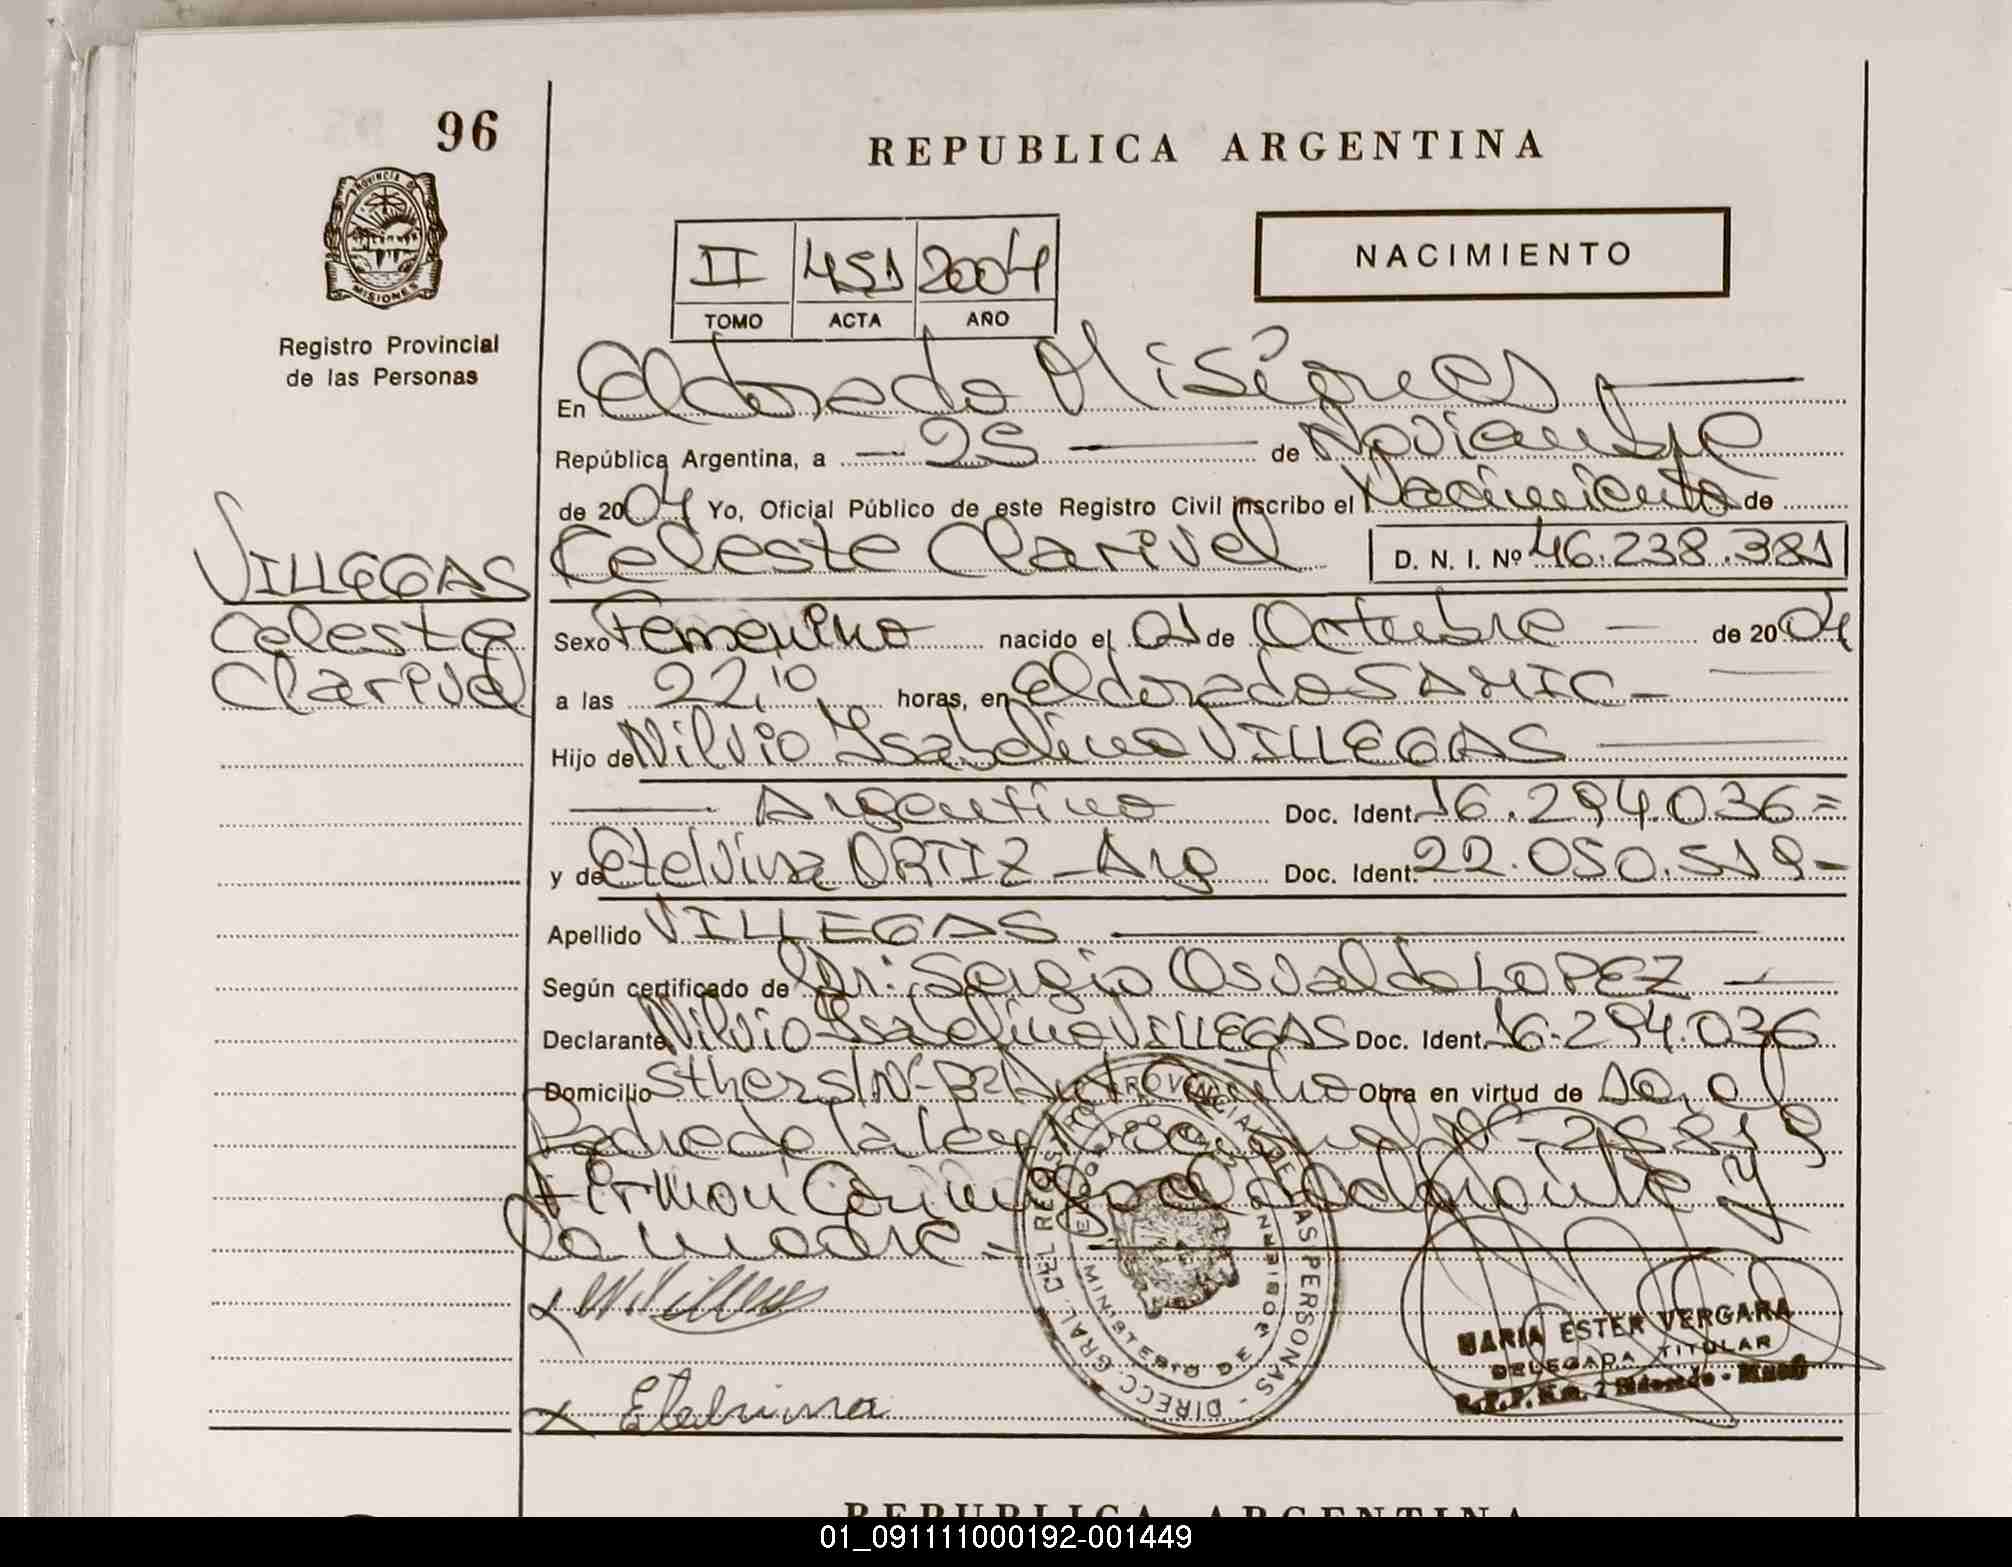 96
REPUBLICA ARGENTINA
PROVINCIA DE
MISIONES
Registro Provincial
de las Personas
II 451 2004
TOMO ACTA AÑO
NACIMIENTO
En Eldorado Misiones
República Argentina, a 25 de Noviembre
de 2004 Yo, Oficial Público de este Registro Civil inscribo el Nacimiento de
Celeste Clarivel D. N. I. Nº 46.238.381
VILLEGAS
Celeste
Clarivel
Sexo Femenino nacido el 01 de Octubre — de 2004
a las 22,10 horas, en Eldorado SAMIC —
Hijo de Nilvio Isabelino VILLEGAS
Argentino Doc. Ident. 16.294.036=
y de Etelvina ORTIZ – Arg Doc. Ident. 22.050.519-
Apellido VILLEGAS
Según certificado de Dr: Sergio Osvaldo LOPEZ —
Declarante Nilvio Isabelino VILLEGAS Doc. Ident. 16-294.036
Domicilio Obra en virtud de
Padre de la Ley
Firman Conmigo el declarante y
la madre. -
Etelvina
REGISTRO PROVINCIAL DE LAS PERSONAS - DIRECC. GRAL. DEL
MINISTERIO DE GOBIERNO
MARIA ESTER VERGARA
DELEGADA TITULAR
R.P.P. Km. 2 Eldorado - Mnes
REPUBLICA ARGENTINA
01_091111000192-001449